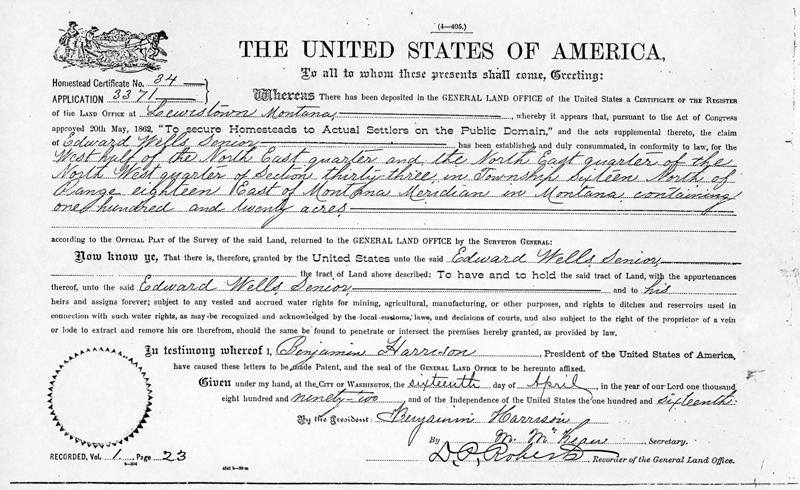 (4—405.)
THE UNITED STATES OF AMERICA,
To all to whom these presents shall come, Greeting:
Homestead Certificate No. 34
APPLICATION 3371
Whereas There has been deposited in the GENERAL LAND OFFICE of the United States a CERTIFICATE OF THE REGISTER
OF THE LAND OFFICE AT Lewistown Montana, , whereby it appears that, pursuant to the Act of Congress
approved 20th May, 1862, "To secure Homesteads to Actual Settlers on the Public Domain," and the acts supplemental thereto, the claim
of Edward Wells Senior has been established and duly consummated, in conformity to law, for the
West half of the North East quarter and the North East quarter of the
North West quarter of Section thirty-three in Township sixteen North of
Range eighteen East of Montana Meridian in Montana, containing
one hundred and twenty acres
according to the OFFICIAL PLAT of the Survey of the said Land, returned to the GENERAL LAND OFFICE by the SURVEYOR GENERAL:
Now know ye, That there is, therefore, granted by the United States unto the said Edward Wells Senior,
the tract of Land above described: To have and to hold the said tract of Land, with the appurtenances
thereof, unto the said Edward Wells Senior and to his
heirs and assigns forever; subject to any vested and accrued water rights for mining, agricultural, manufacturing, or other purposes, and rights to ditches and reservoirs used in
connection with such water rights, as may be recognized and acknowledged by the local customs, laws, and decisions of courts, and also subject to the right of the proprietor of a vein
or lode to extract and remove his ore therefrom, should the same be found to penetrate or intersect the premises hereby granted, as provided by law.
In testimony whereof I, Benjamin Harrison , President of the United States of America,
have caused these letters to be made Patent, and the seal of the GENERAL LAND OFFICE to be hereunto affixed.
Given under my hand, at the CITY OF WASHINGTON, the sixteenth day of April , in the year of our Lord one thousand
eight hundred and ninety-two , and of the Independence of the United States the one hundred and sixteenth.
By the President: Benjamin Harrison
By M. McKean , Secretary.
D. P. Roberts , Recorder of the General Land Office.
RECORDED, Vol. 1 , Page 23